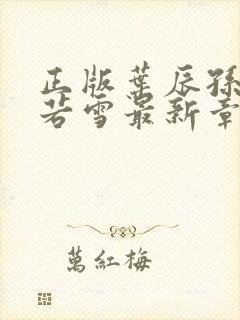 正版葉辰孫
若雪最新章
萬紅梅